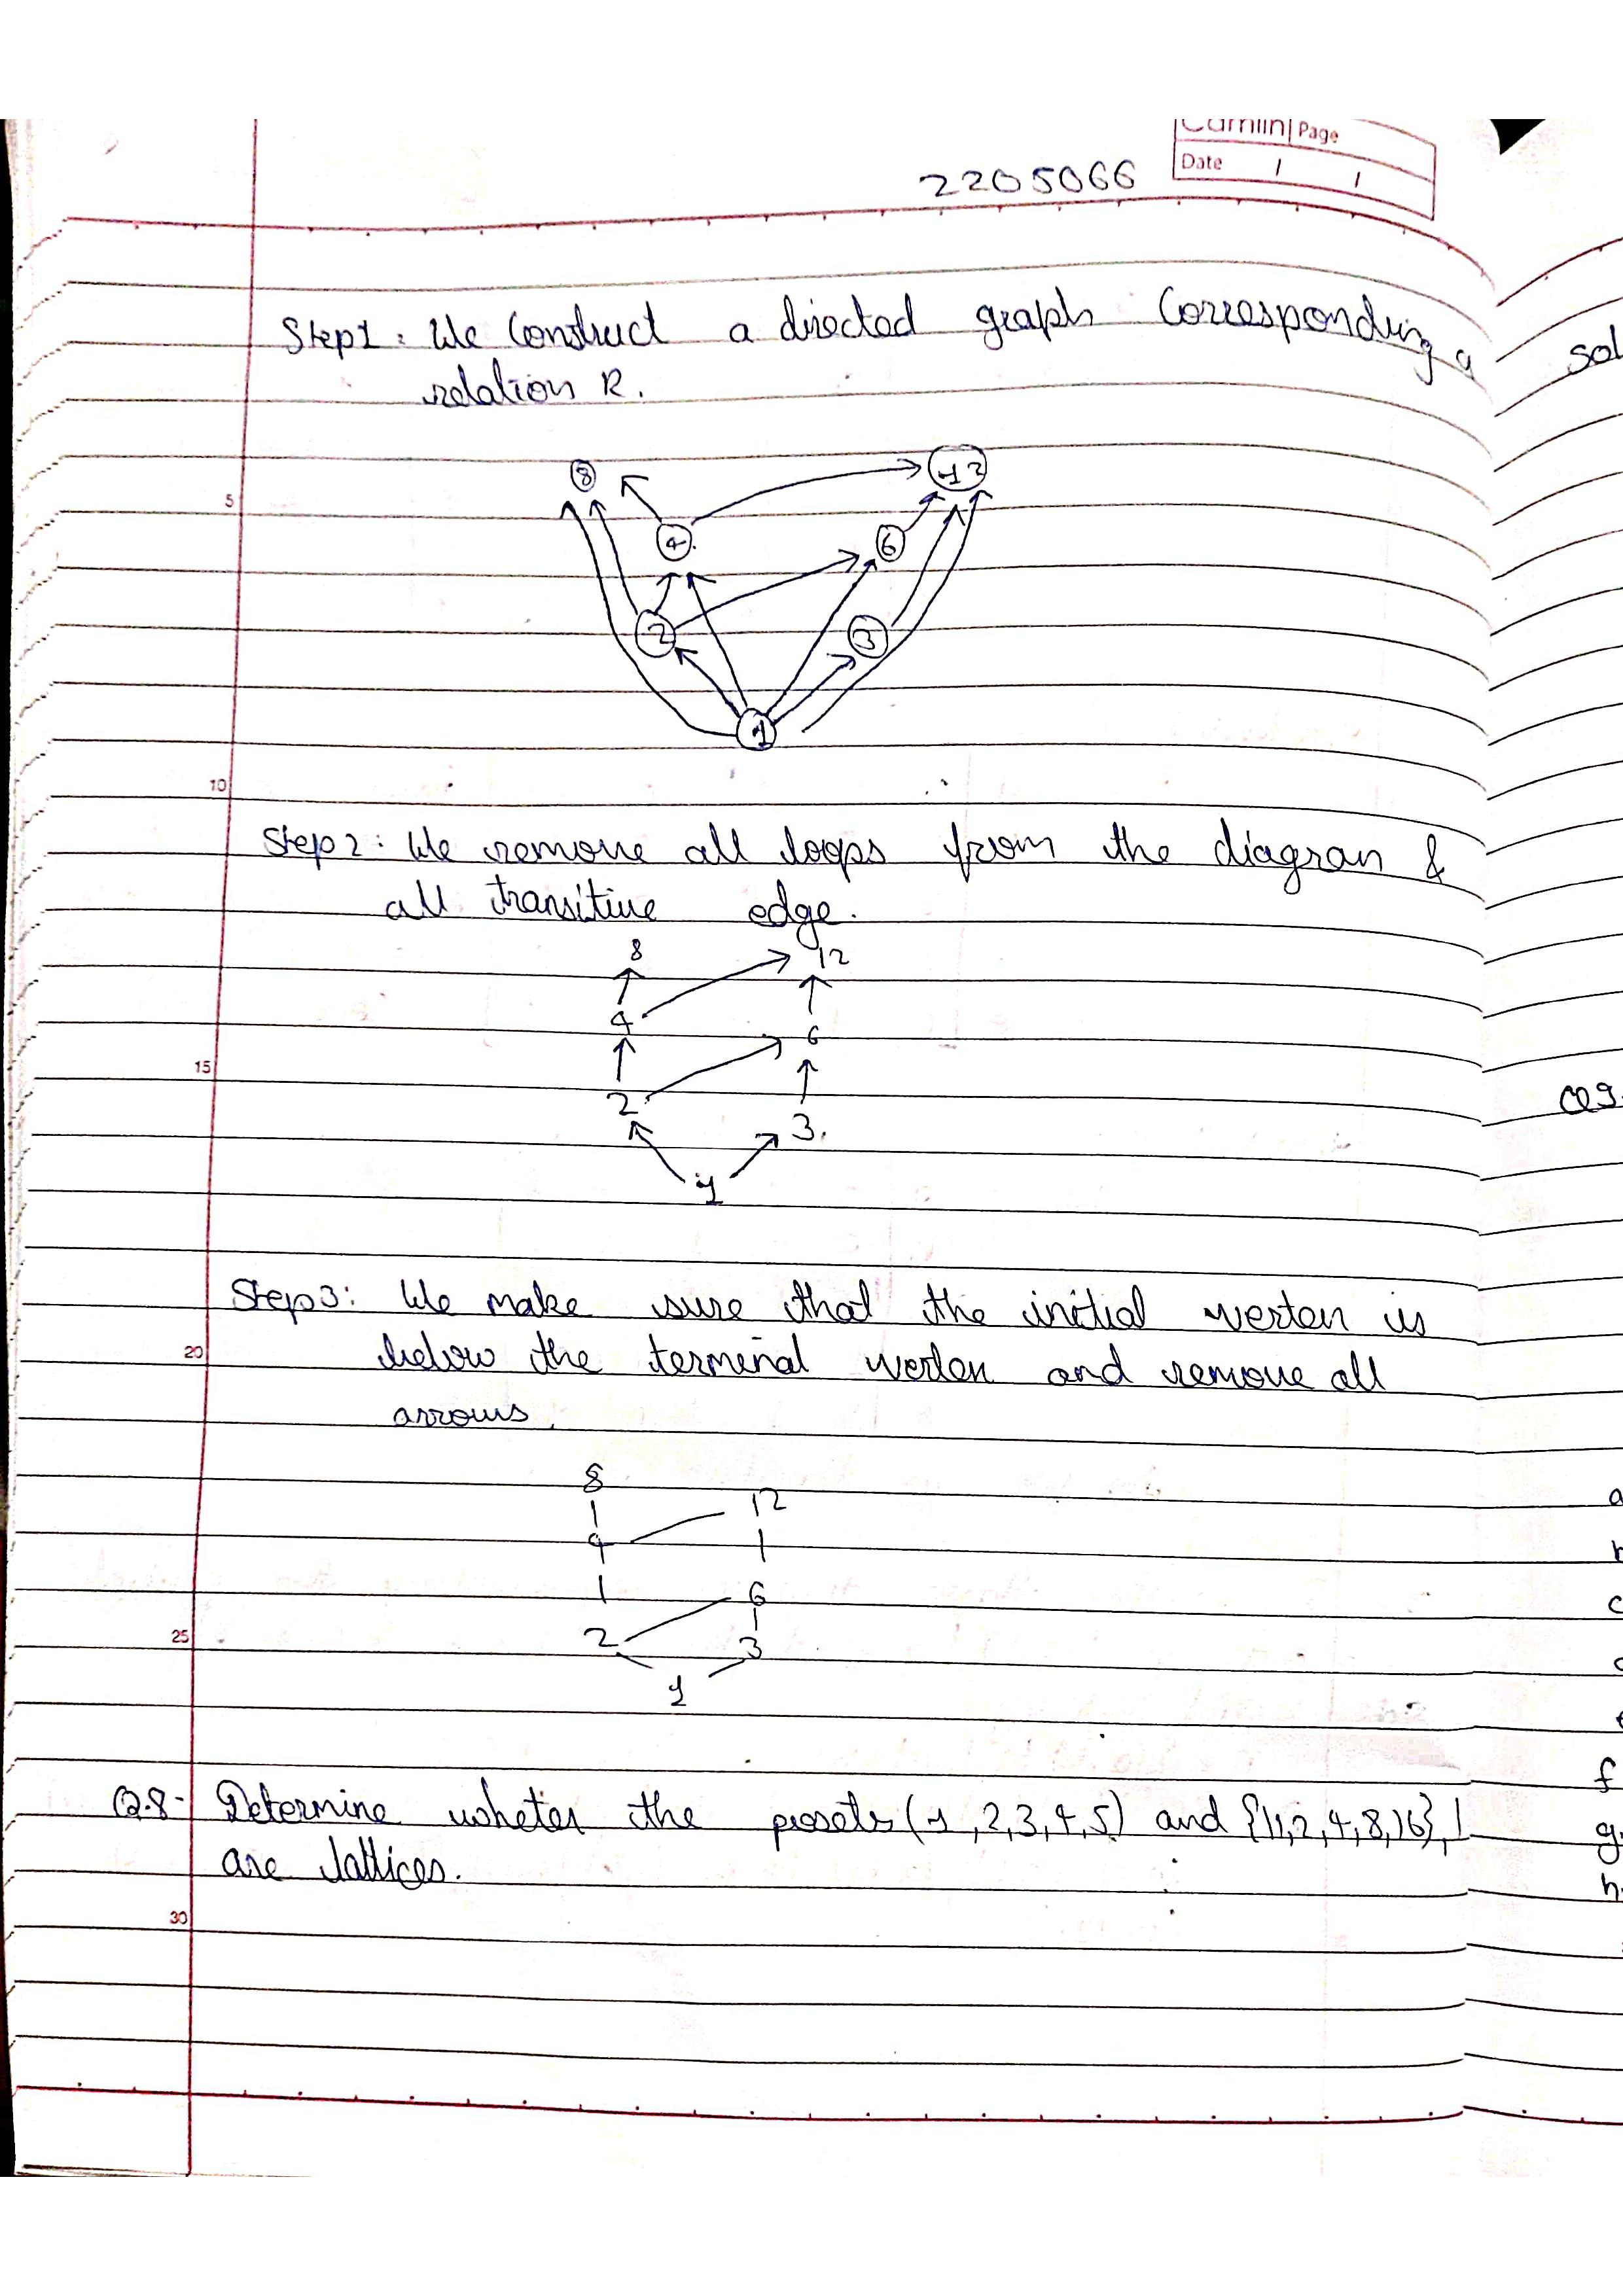 Camlin Page
Date / /
2205066
Step1: We Construct a directed graph Corresponding
relation R.
sol
8 12
5
4 6
2 3
1
10
Step2: We remove all loops from the diagran &
all transitive edge.
8 12
4 6
15
2 3.
1
Q9.
Step3: We make sure that the initial verten is
20
below the terminal verten and remove all
arrows.
8
12
4
6
25
2 3
1
f
Q.8- Determine wheter the posets (1,2,3,4,5) and {1,2,4,8,16},|
g.
are lattices.
h.
30